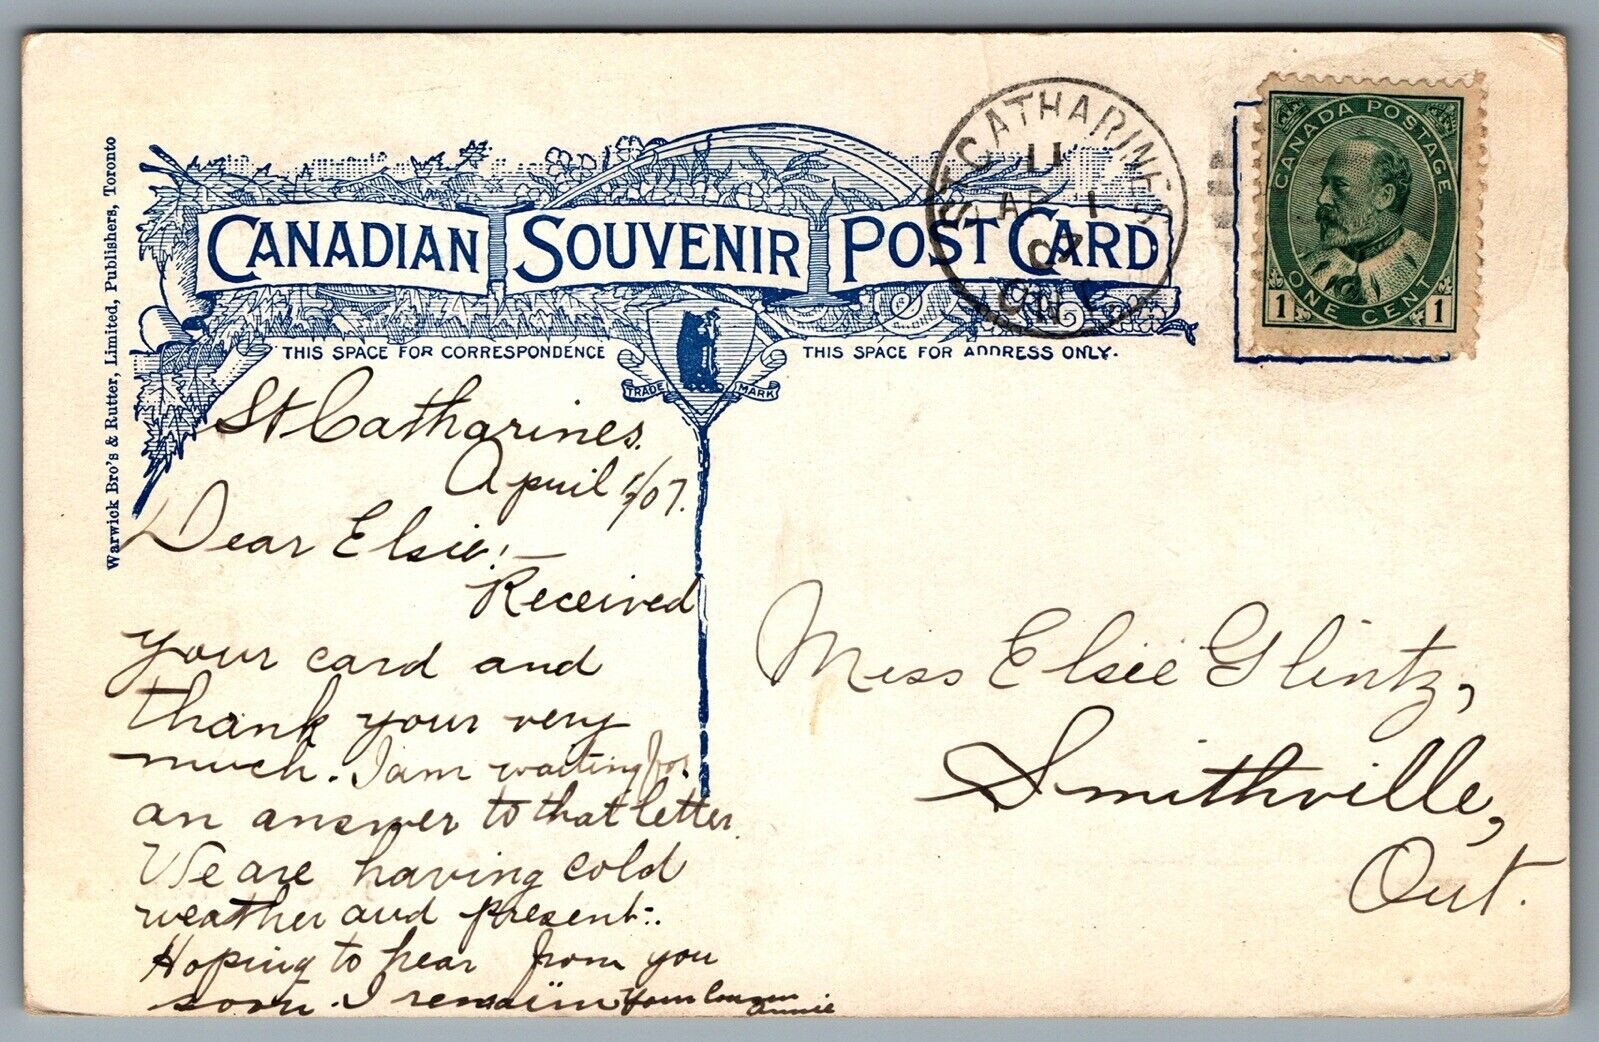 Warwick Bro's & Rutter, Limited, Publishers, Toronto
CANADIAN SOUVENIR POST CARD
THIS SPACE FOR CORRESPONDENCE
THIS SPACE FOR ADDRESS ONLY.
TRADE MARK
ST CATHARINES
11
AP 1
07
ONT
CANADA POSTAGE
ONE CENT
1 1
St Catharines.
April 1/07.
Dear Elsie:—
Received
your card and
thank your very
much. I am waiting for
an answer to that letter.
We are having cold
weather and present.
Hoping to hear from you
soon. I remain Your Cousin
Annie
Miss Elsie Glintz,
Smithville,
Ont.